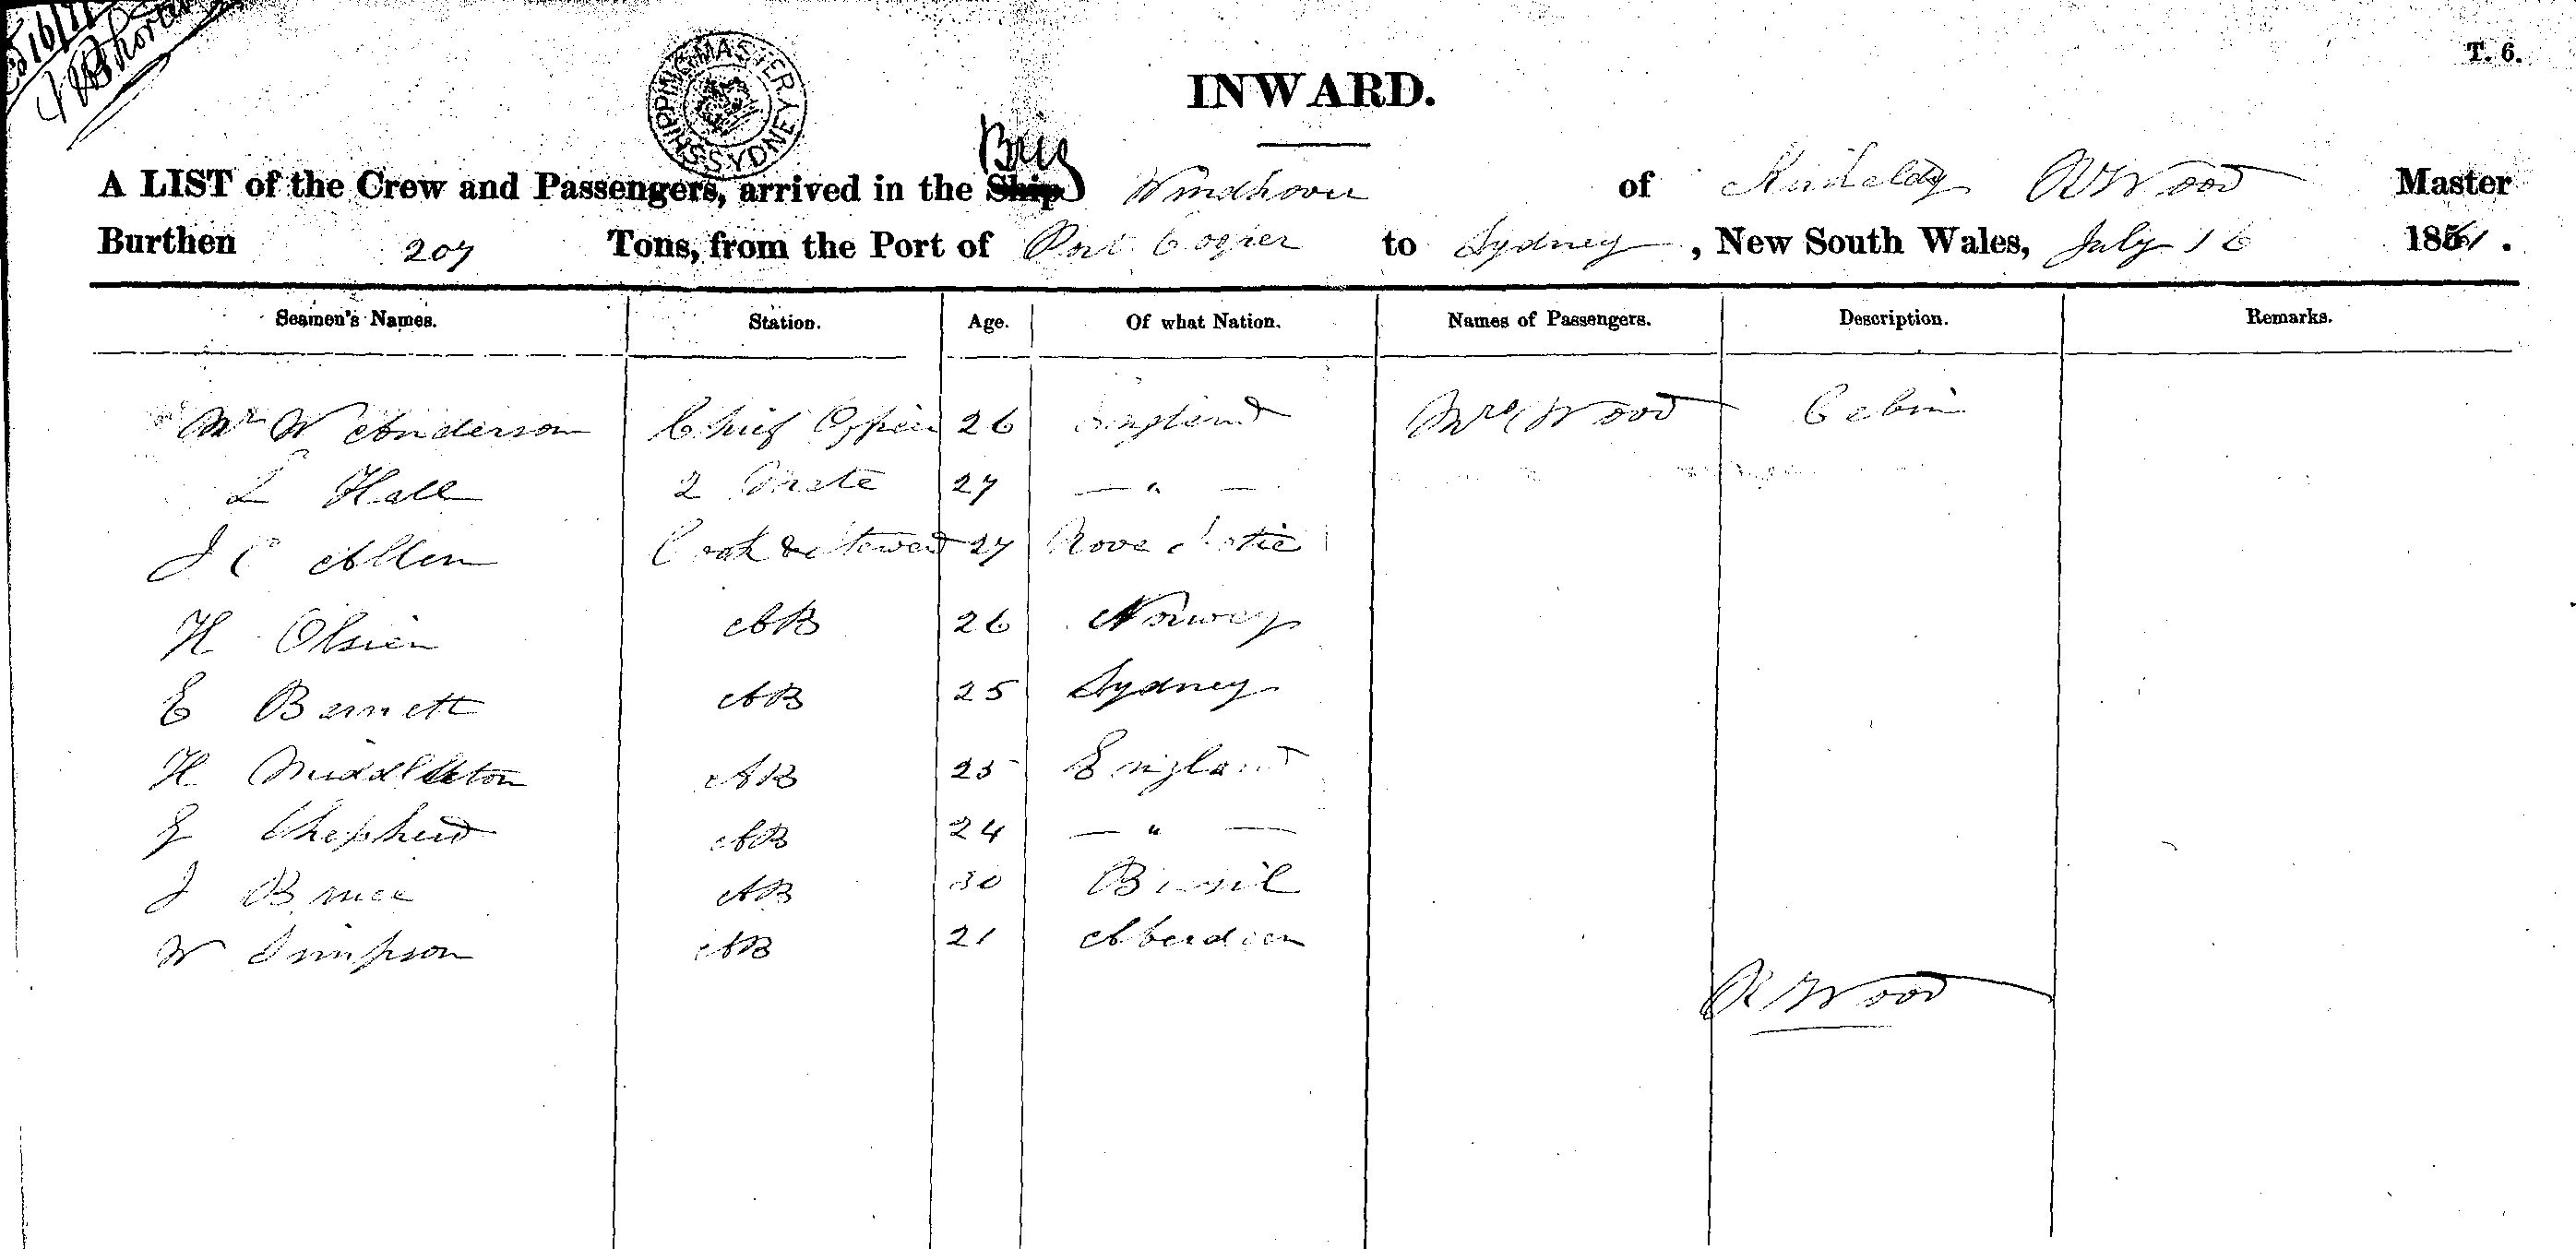 T. 6.
SHIPPING MASTER SYDNEY
INWARD.
Brig
A LIST of the Crew and Passengers, arrived in the Ship Windhover of Kirkcaldy R Wood Master
Burthen 207 Tons, from the Port of Port Cooper to Sydney, New South Wales, July 16 1861.
Seamen's Names. Station. Age. Of what Nation. Names of Passengers. Description. Remarks.
Mr W Anderson Chief Officer 26 England Mrs Wood Cabin
L Hall 2 Mate 27 — " —
J C Allen Cook & Steward 27 Nova Scotia
H Olsien AB 26 Norway
E Barnett AB 25 Sydney
H Middleton AB 25 England
G Shepherd AB 24 — " —
J Bruce AB 30 Brasil
W Simpson AB 21 Aberdeen
R Wood